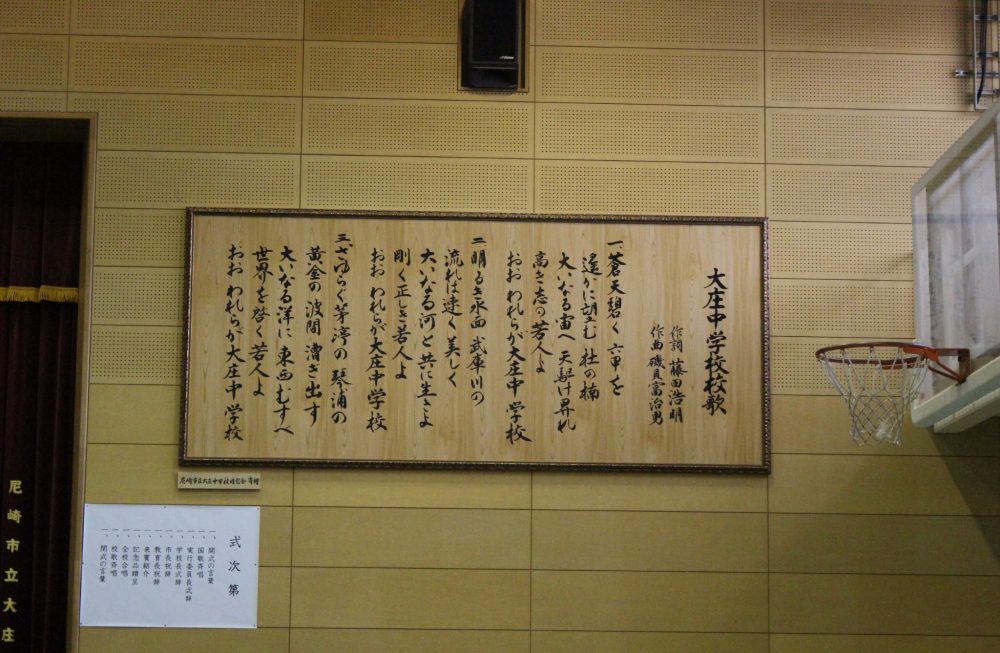 大庄中学校校歌
作詞 藤田浩明
作曲 磯貝富治男
一、蒼天碧く 六甲を
遥かに望む 社の楠
大いなる宙へ 天駆け昇れ
高き志の若人よ
おお われらが大庄中学校
二、明るき水面 武庫川の
流れは速く 美しく
大いなる河と 共に生きよ
剛く正しき若人よ
おお われらが大庄中学校
三、さゆらぐ茅渟の 琴浦の
黄金の波間 漕ぎ出す
大いなる洋に 東西むすべ
世界を啓く若人よ
おお われらが大庄中学校
尼崎市立大庄中学校 寄贈
式次第
一、開式の言葉
一、国歌斉唱
一、実行委員長式辞
一、学校長式辞
一、市長祝辞
一、教育長祝辞
一、来賓紹介
一、記念品贈呈
一、全校合唱
一、校歌斉唱
一、閉式の言葉
尼崎市立大庄